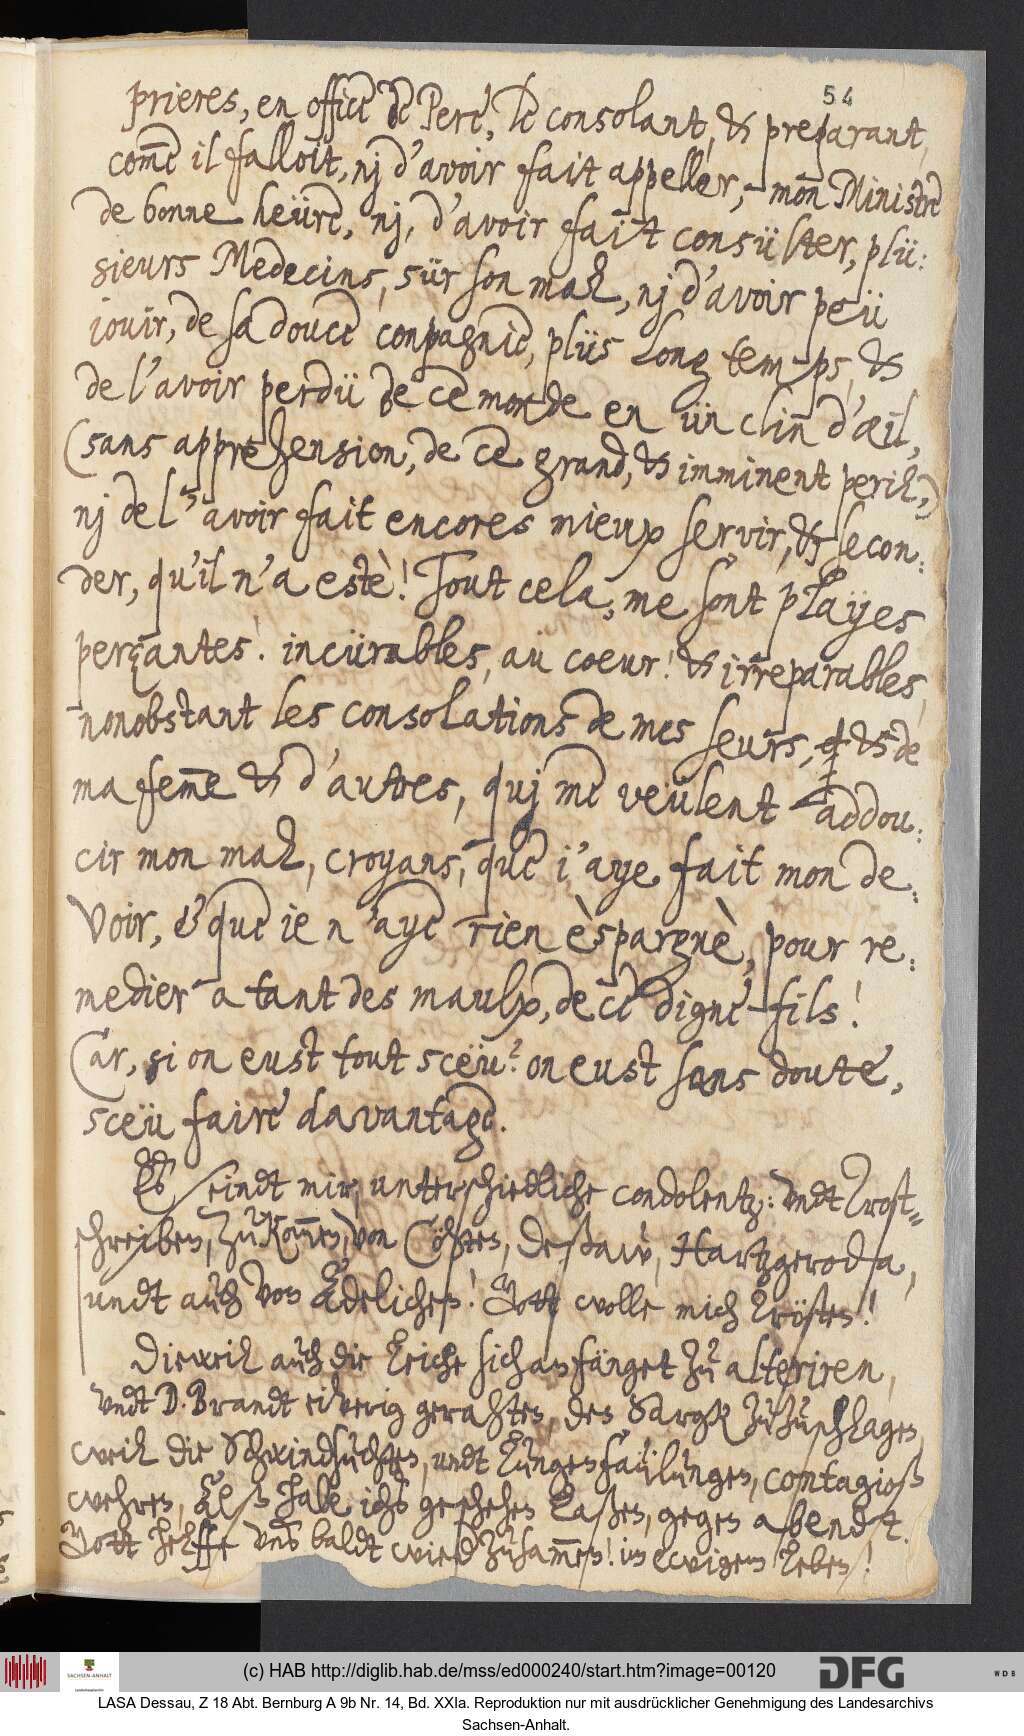 54
prieres, en office de Pere, le consolant, & preparant,
com̄e il falloit, nj d'avoir fait appeller, mon Ministre
de bonne heüre, nj, d'avoir fait consülter, plü:
sieurs Medecins, sür son mal, nj d'avoir peü
iouir, de sa douce conpagnie, plüs long temps, &
de l'avoir perdü de ce monde en ün clin d'œil,
(sans apprehension, de ce grand, & imminent peril,)
nj de l'avoir fait encores mieux servir, & secon:
der, qu'il n'a estè! Tout cela, me sont playes
perçantes! incürables, au coeur! & irreparables,
nonobstant les consolations de mes seurs, & de
ma fem̄e & d'autres, quj me veulent addou:
cir mon mal, croyans, que i'aye fait mon de:
voir, & que ie n'aye rien èspargnè, pour re:
medier a tant des maulx, de ce digne fils!
Car, si on eust tout sceü? on eust sans doute,
sceü faire davantage.
Es seindt mir, unterschiedliche condolentz: undt Trost-
schreiben, zukom̄en, von Cöhten, Deßaw, Hartzgeroda,
undt auch von Adelichen! Gott wolle mich trösten!
Dieweil auch die Leiche sich anfänget zu alteriren,
undt D. Brandt eiverig gerahten, den Sargk zuzuschlagen,
weil die Schwindsuchten, undt Lungenfäulungen, contagioß
wehren, Alß habe ichs geschehen laßen, gegen abendt.
Gott helffe unß baldt wied zusam̄en! im ewigem Leben!
(c) HAB http://diglib.hab.de/mss/ed000240/start.htm?image=00120
SACHSEN-ANHALT
DFG
WDB
LASA Dessau, Z 18 Abt. Bernburg A 9b Nr. 14, Bd. XXIa. Reproduktion nur mit ausdrücklicher Genehmigung des Landesarchivs
Sachsen-Anhalt.